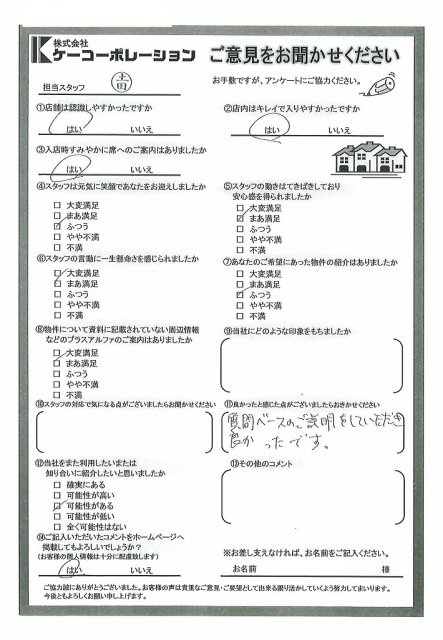 株式会社
ケーコーポレーション ご意見をお聞かせください
担当スタッフ
お手数ですが、アンケートにご協力ください。
①店舗は認識しやすかったですか
はい いいえ
②店内はキレイで入りやすかったですか
はい いいえ
③入店時すみやかに席へのご案内はありましたか
はい いいえ
④スタッフは元気に笑顔であなたをお迎えしましたか
□ 大変満足
□ まあ満足
☑ ふつう
□ やや不満
□ 不満
⑤スタッフの動きはてきぱきしており
安心感を得られましたか
□ 大変満足
☑ まあ満足
□ ふつう
□ やや不満
□ 不満
⑥スタッフの言動に一生懸命さを感じられましたか
☑ 大変満足
□ まあ満足
□ ふつう
□ やや不満
□ 不満
⑦あなたのご希望にあった物件の紹介はありましたか
□ 大変満足
□ まあ満足
☑ ふつう
□ やや不満
□ 不満
⑧物件について資料に記載されていない周辺情報
などのプラスアルファのご案内はありましたか
☑ 大変満足
□ まあ満足
□ ふつう
□ やや不満
□ 不満
⑨当社にどのような印象をもちましたか
⑩スタッフの対応で気になる点がございましたらお聞かせください
⑪良かったと感じた点がございましたらおきかせください
質問ベースのご説明をしていただき
良かったです。
⑫当社をまた利用したいまたは
知り合いに紹介したいと思いましたか
□ 確実にある
□ 可能性が高い
☑ 可能性がある
□ 可能性が低い
□ 全く可能性はない
⑬その他のコメント
⑭ご記入いただいたコメントをホームページへ
掲載してもよろしいでしょうか?
(お客様の個人情報は十分に配慮致します)
はい いいえ
※お差し支えなければ、お名前をご記入ください。
お名前 様
ご協力誠にありがとうございました。お客様の声は貴重なご意見・ご要望として出来る限り活かしていくよう努力してまいります。
今後ともよろしくお願い申し上げます。